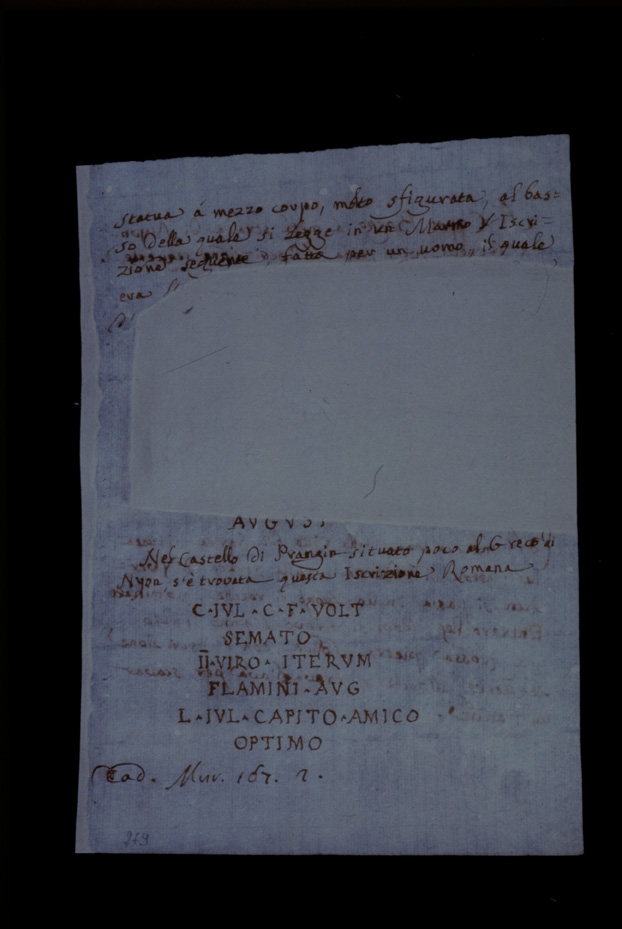 statua á mezzo corpo, molto sfigurata, al bas=
so della quale si legge in un Marmo l' Iscri=
zione seguente, fatta per un uomo il quale
era
AVGVST
Nel Castello di Prangin situato poco al Greco di
Nyon s'è trovata questa Iscrizione Romana
C·IVL·C·F·VOLT
SEMATO
II·VIRO·ITERVM
FLAMINI·AVG
L·IVL·CAPITO·AMICO
OPTIMO
Cod. Mur. 167. 2.